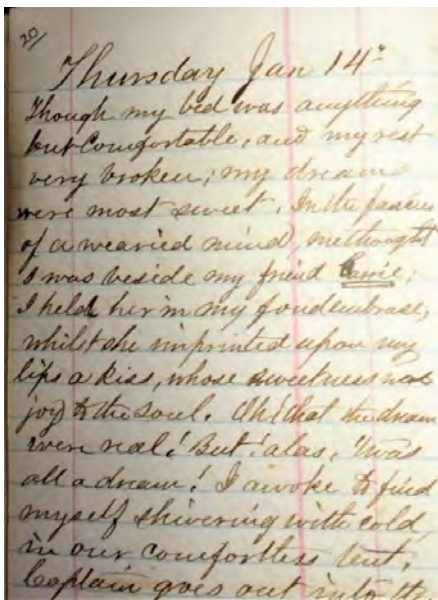 20/
Thursday Jan 14th
Though my bed was anything
but Comfortable, and my rest
very broken; my dreams
were most sweet. In the fancies
of a wearied mind, methought
I was beside my friend Carrie;
I held her in my fond embrase,
whilst she imprinted upon my
lips a kiss, whose sweetness was
joy to the soul. Oh! that the dream
were real! But! alas, 'twas
all a dream! I awoke to find
myself shivering with cold,
in our comfortless tent.
Captain goes out into the